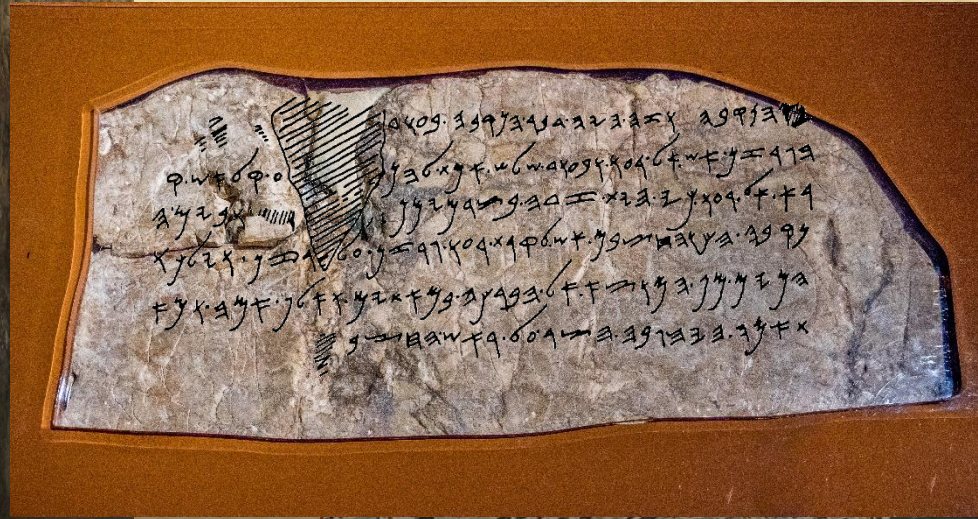 𐤄𐤍𐤒𐤁𐤄 . 𐤅𐤆𐤄 . 𐤄𐤉𐤄 . 𐤃𐤁𐤓 . 𐤄𐤍𐤒𐤁𐤄 . 𐤁𐤏𐤅𐤃
𐤄𐤂𐤓𐤆𐤍 . 𐤀𐤔 . 𐤀𐤋 . 𐤓𐤏𐤅 . 𐤅𐤁𐤏𐤅𐤃 . 𐤔𐤋𐤔 . 𐤀𐤌𐤕 . 𐤋𐤄𐤍 𐤏 . 𐤒𐤋 . 𐤀𐤔 . 𐤒
𐤓𐤀 . 𐤀𐤋 . 𐤓𐤏𐤅 . 𐤊𐤉 . 𐤄𐤉𐤕 . 𐤆𐤃𐤄 . 𐤁𐤑𐤓 . 𐤌𐤉𐤌𐤍 𐤅𐤁𐤉𐤌 . 𐤄
𐤍𐤒𐤁𐤄 . 𐤄𐤊𐤅 . 𐤄𐤇𐤑𐤁𐤌 . 𐤀𐤔 . 𐤋𐤒𐤓𐤕 . 𐤓𐤏𐤅 . 𐤂𐤓𐤆𐤍 . 𐤏𐤋 . 𐤂𐤓𐤆𐤍 . 𐤅𐤉𐤋𐤊𐤅
𐤄𐤌𐤉𐤌 . 𐤌𐤍 . 𐤄𐤌𐤅𐤑𐤀 . 𐤀𐤋 . 𐤄𐤁𐤓𐤊𐤄 . 𐤁𐤌𐤀𐤕𐤉𐤌 . 𐤅𐤀𐤋𐤐 . 𐤀𐤌𐤄 . 𐤅𐤌𐤀
𐤕 . 𐤀𐤌𐤄 . 𐤄𐤉𐤄 . 𐤂𐤁𐤄 . 𐤄𐤑𐤓 . 𐤏𐤋 . 𐤓𐤀𐤔 . 𐤄𐤇𐤑𐤁